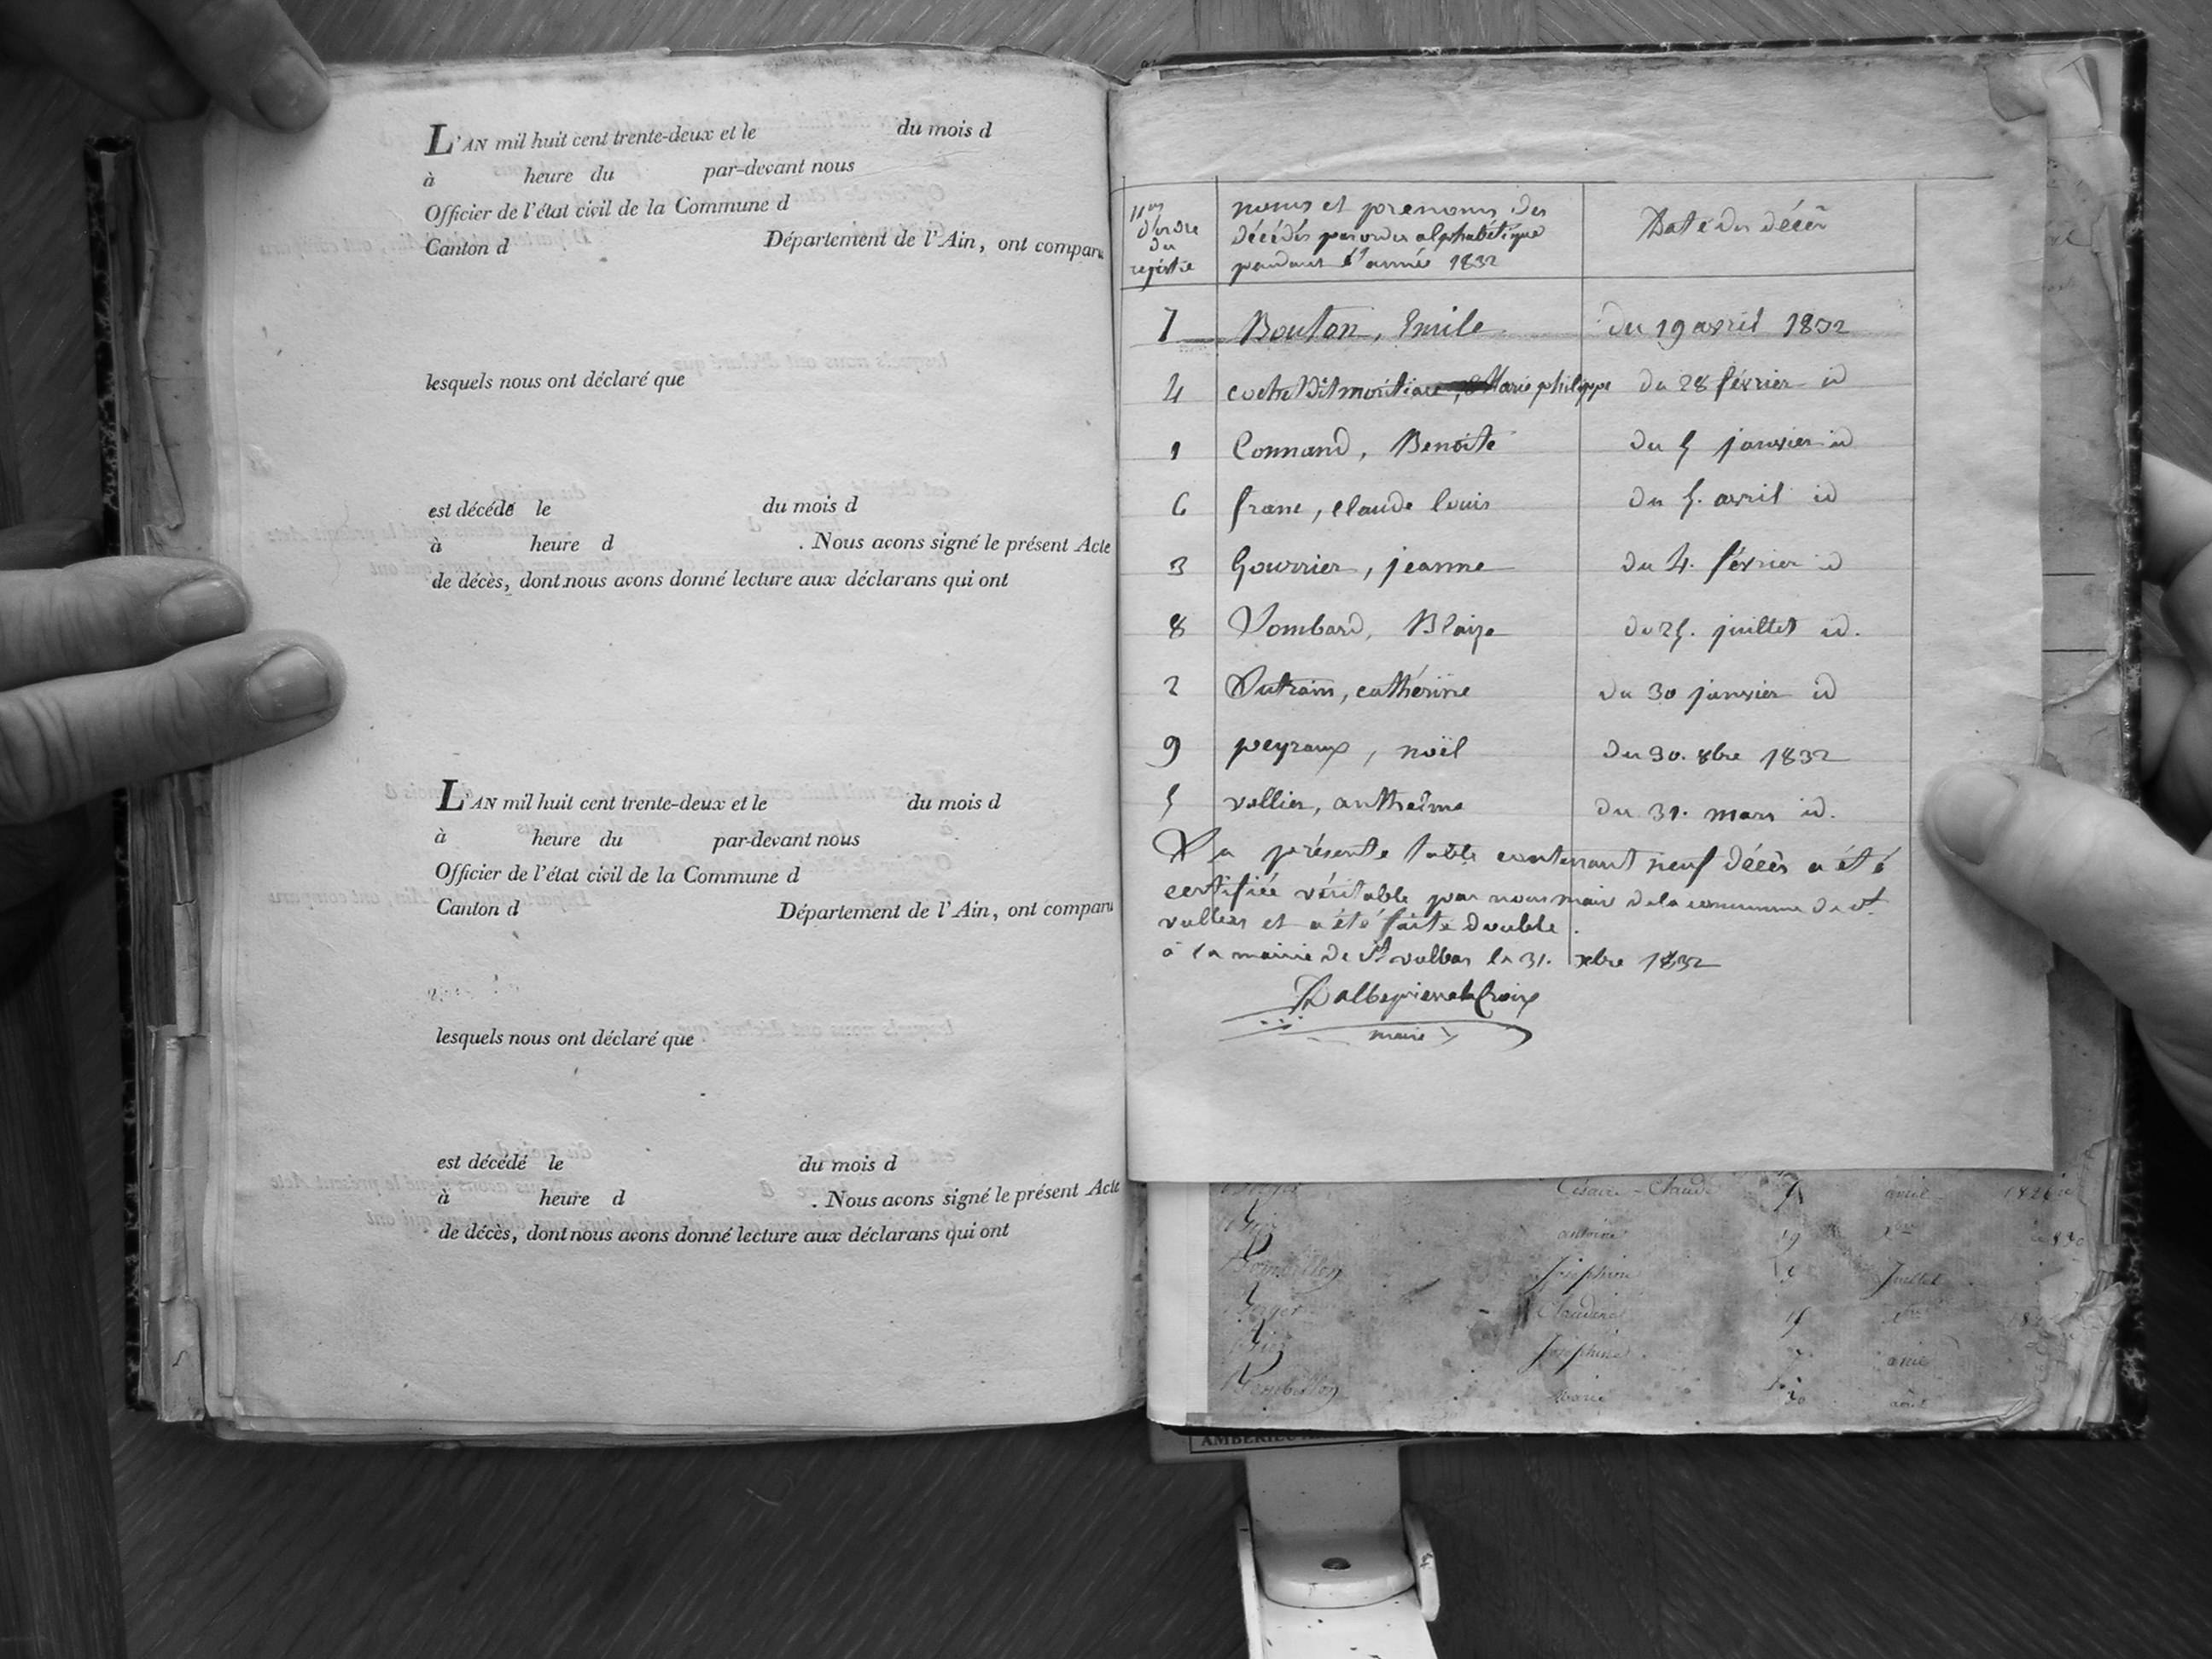 L'AN mil huit cent trente-deux et le du mois d
à heure du par-devant nous
Officier de l'état civil de la Commune d
Canton d Département de l'Ain, ont comparu
lesquels nous ont déclaré que
est décédé le du mois d
à heure d . Nous avons signé le présent Acte
de décès, dont nous avons donné lecture aux déclarans qui ont
L'AN mil huit cent trente-deux et le du mois d
à heure du par-devant nous
Officier de l'état civil de la Commune d
Canton d Département de l'Ain, ont comparu
lesquels nous ont déclaré que
est décédé le du mois d
à heure d . Nous avons signé le présent Acte
de décès, dont nous avons donné lecture aux déclarans qui ont
nos d'ordre du registre
noms et prenoms des
décédés par ordre alphabétique
pendant l'année 1832
Date des décès
7 Bouton, Emile du 19 avril 1832
4 cochet dit Marie philippe du 28 février id
1 Connand, Benoite du 5 janvier id
6 franc, claude louis du 5. avril id
3 Gourrier, jeanne du 4. février id
8 Lombard, Blaize du 25. juillet id.
2 catherine du 30 janvier id
9 peyraux, noël du 30. 8bre 1832
5 vallier, anthelme du 31. mars id.
La présente table contenant neuf décès a été
certifiée véritable par nous maire de la commune de st
vulbas et a été faite double.
à la mairie de st vulbas le 31. xbre 1832
maire
Césaire - Claude avril
antoine 19
Joséphine Juillet
Berger Claudine
Joséphine
Marie 30 août